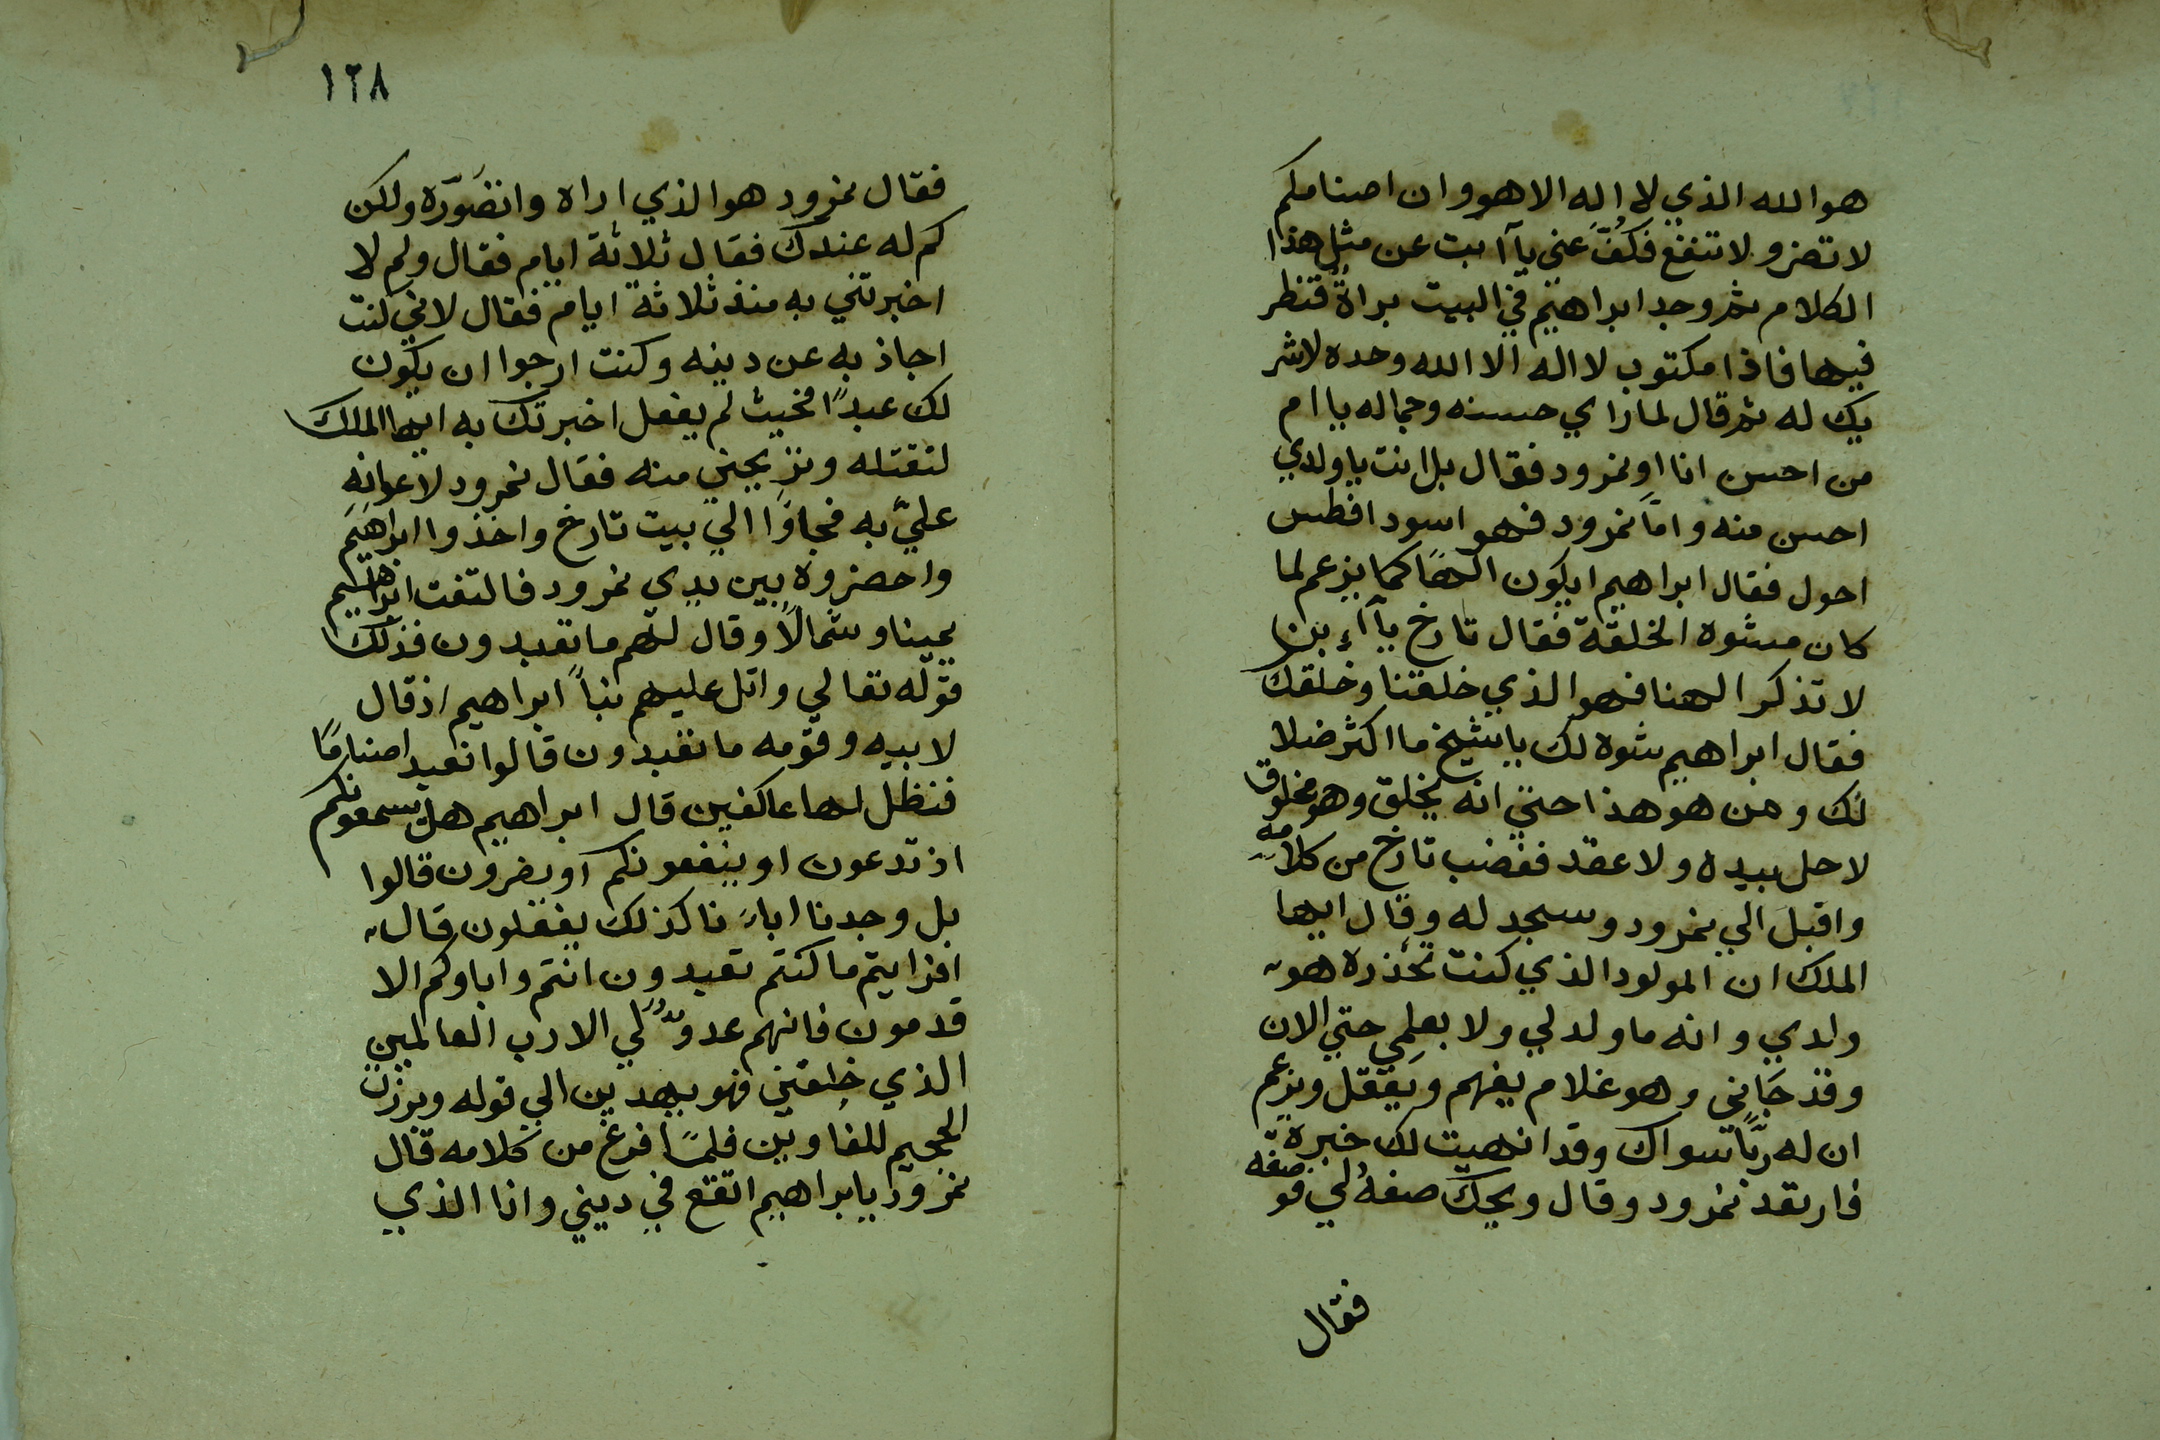 هو الله الذي لا اله الا هو وان اصنامكم
لا تضر ولا تنفع فكُفّ عني يآ ابت عن مثل هذا
الكلام ثم وجد ابراهيم في البيت براةٌ فنظر
فيها فاذا مكتوب لا اله الا الله وحده لا شر
يك له ثم قال لما راي حسنه وجماله يا ام
من احسن انا او نمرود فقال بل انت يا ولدي
احسن منه واما نمرود فهو اسود افطس
احول فقال ابراهيم ايكون الهًا كما يزعم لما
كان مشوه الخلقة فقال تارخ يآ
لا تذكر الهنا فهو الذي خلقنا وخلقك
فقال ابراهيم شوه لك يا شيخ ما اكثر ضلا
لك ومن هو هذا حتي انه يخلق وهو مخلوق
لا حل بيده ولا عقد فغضب تارخ من كلامه
واقبل الي نمرود وسجد له وقال ايها
الملك ان المولود الذي كنت تحذره هو
ولدي وانه ما ولد لي ولا بعلمي حتي الان
وقد جَاني وهو غلام يفهم ويعقل ويزعم
ان له ربًّا سواك وقد انهيت لك خبره
فارتعد نمرود وقال ويحك صفهُ لي فوصفه
فقال
١٢٨
فقال نمرود هو الذي اراه واتصَوّره ولكن
كم له عندك فقال ثلاثة ايام فقال ولم لا
اخبرتني به منذ ثلاثة ايام فقال لاني كنت
اجاذ به عن دينه وكنت ارجوا ان يكون
لك عبدًا فحيث لم يفعل اخبرتك به ايها الملك
لتقتله وتريحني منه فقال نمرود لاعوانه
عليّ به فجاوَا الي بيت تارخ واخذوا ابراهيم
واحضروه بين يدي نمرود فالتفت ابراهيم
يمينا وشمالًا وقال لهم ما تعبدون فذلك
قوله تعالي واتل عليهم نباً ابراهيم اذ قال
لابيه وقومه ما تعبدون قالوا نعبد اصنامًا
فنظل لها عاكفين قال ابراهيم هل يسمعونكم
اذ تدعون او ينفعونكم او يضرون قالوا
بل وجدنا اباءنا كذلك يفعلون قال
افرايتم ما كنتم تعبدون انتم واباوكم الا
قدمون فانهم عدوٌّ لي الا رب العالمين
الذي خلقني فهو يهدين الي قوله وبرزت
الجحيم للغاوين فلمّا فرغ من كلامه قال
نمرود يا براهيم اتقع في ديني وانا الذي